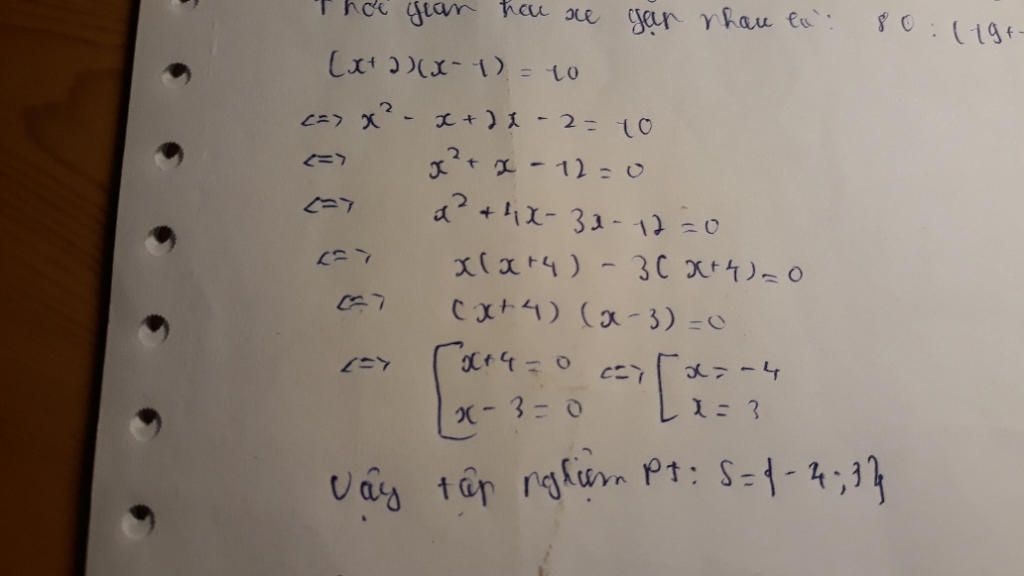 Thời gian hai xe gặp nhau là: 80 : (19+
(x+2)(x-1) = 10
<=> x² - x + 2x - 2 = 10
<=> x² + x - 12 = 0
<=> x² + 4x - 3x - 12 = 0
<=> x(x+4) - 3(x+4) = 0
<=> (x+4)(x-3) = 0
<=> [ x+4 = 0 <=> [ x = -4
x - 3 = 0 x = 3
Vậy tập nghiệm pt: S={-4;3}